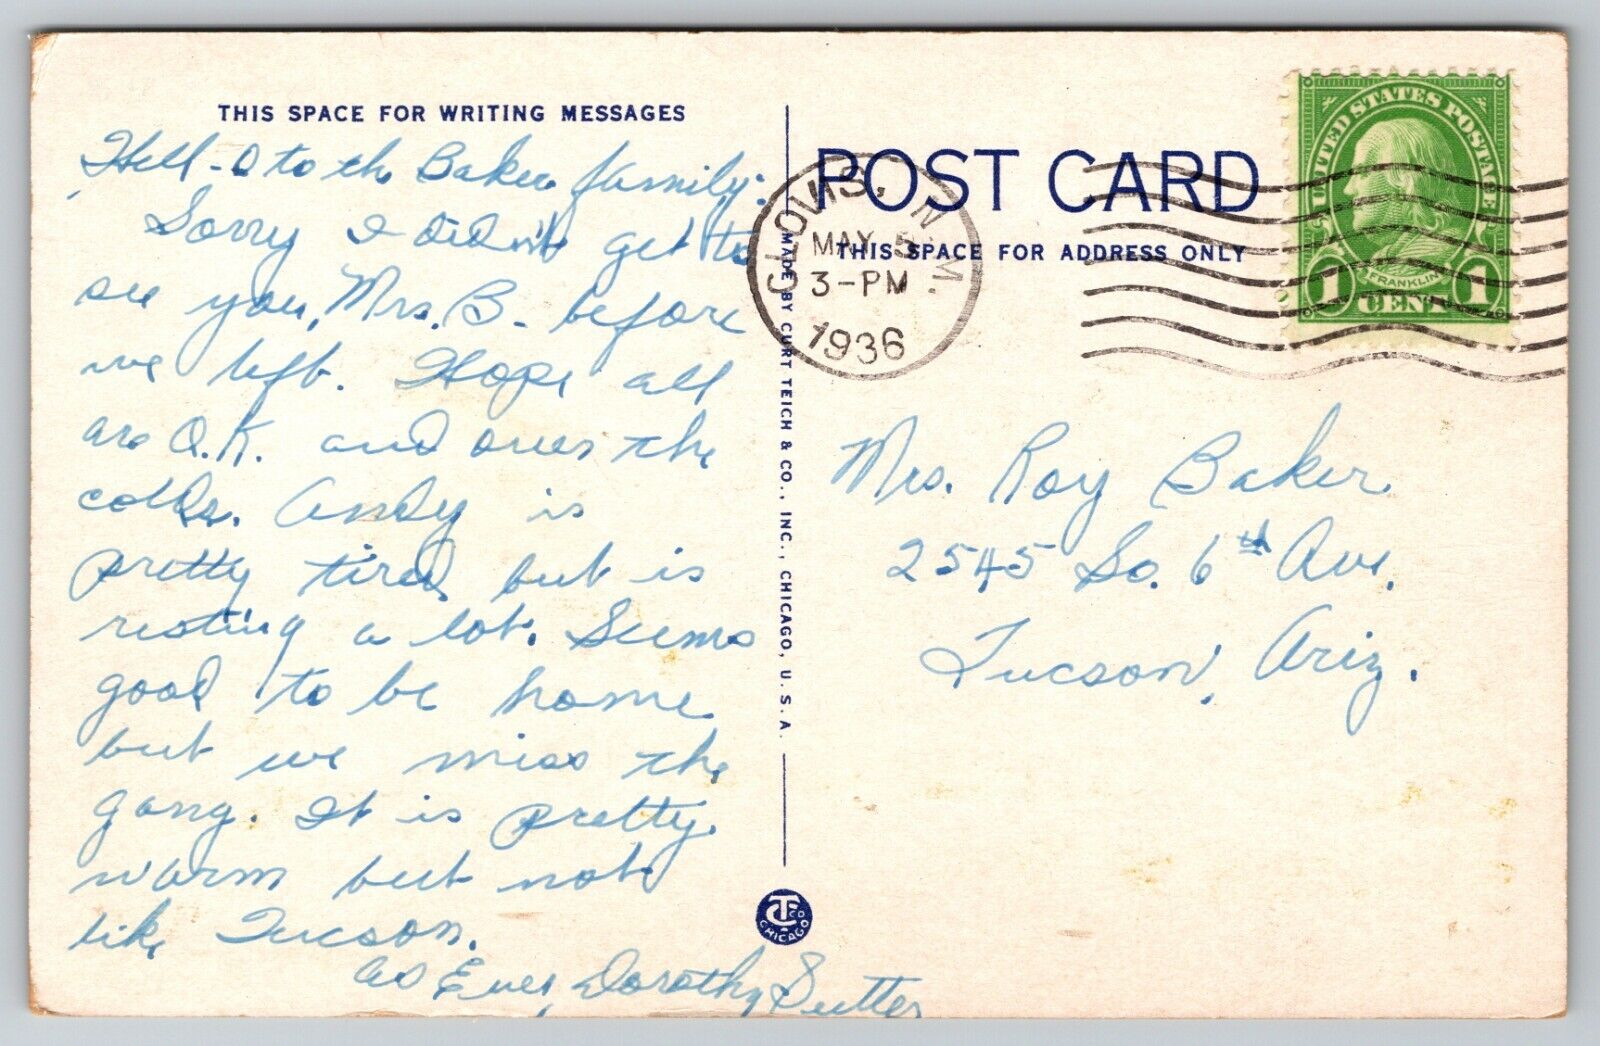 THIS SPACE FOR WRITING MESSAGES
Hell-O to th Baker family:
Sorry I didn't get to
see you, Mrs. B- before
we left. Hope all
are O.K. and over the
colds. Andy is
pretty tired but is
resting a lot. Seems
good to be home
but we miss the
gang. It is pretty
warm but not
like Tucson.
As Ever, Dorothy Sutter
MADE BY CURT TEICH & CO., INC., CHICAGO, U.S.A.
CT CO
CHICAGO
POST CARD
THIS SPACE FOR ADDRESS ONLY
CLOVIS, N.M.
MAY 5
3-PM
1936
UNITED STATES POSTAGE
FRANKLIN
1 CENT 1
Mrs. Roy Baker
2545 So. 6th Ave.
Tucson, Ariz.